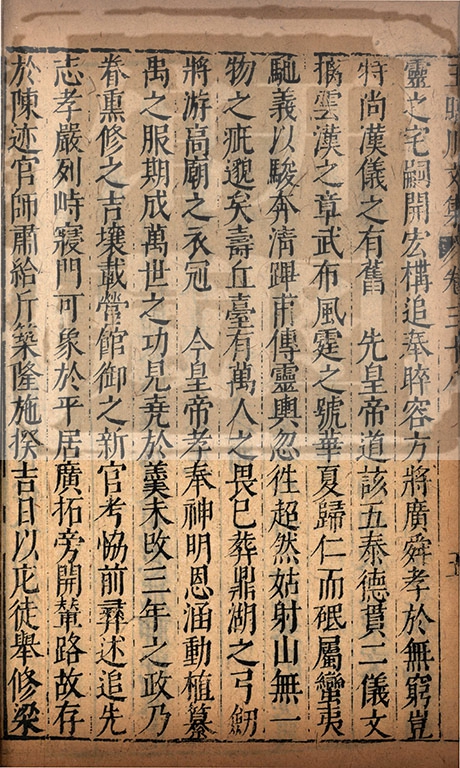 靈之宅嗣開宏構追奉睟容方將廣舜孝於無窮豈
特尚漢儀之有舊　先皇帝道該五泰德貫二儀文
摛雲漢之章武布風霆之號華夏歸仁而砥屬蠻夷
馳義以駿奔淸蹕甫傳靈輿忽徃超然姑射山無一
物之疵邈矣壽丘臺有萬人之畏已葬鼎湖之弓劒
將游高廟之衣冠　今皇帝孝奉神明恩涵動植纂
禹之服期成萬世之功見堯於羹未改三年之政乃
眷熏修之吉壤載營館御之新官考協前彛述追先
志孝嚴列峙寢門可象於平居廣拓旁開輦路故存
於陳迹官師肅給斤築隆施揆吉日以庀徒舉修梁